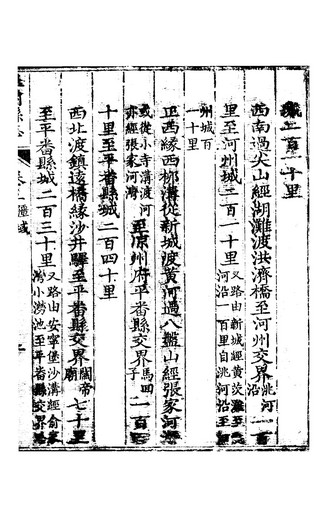 城二百二十里
西南過尖山經湖灘渡洪濟橋至河州交界洮河沿一百
里至河州城二百一十里又路由新城經黃茨灘至河沿一百里自洮河沿至
州城百一十里
正西緣西柳溝從新城渡黃河過八盤山經張家河灣
或從小寺溝渡河亦經張家河灣至涼州府平番縣交界馬回子一百
十里至平番縣城二百四十里
西北渡鎮遠橋緣沙井驛至平番縣交界關帝廟七十里
至平番縣城二百三十里又路由安寧堡沙溝經俞家灣小澇池至平番縣交界
卷一 疆域